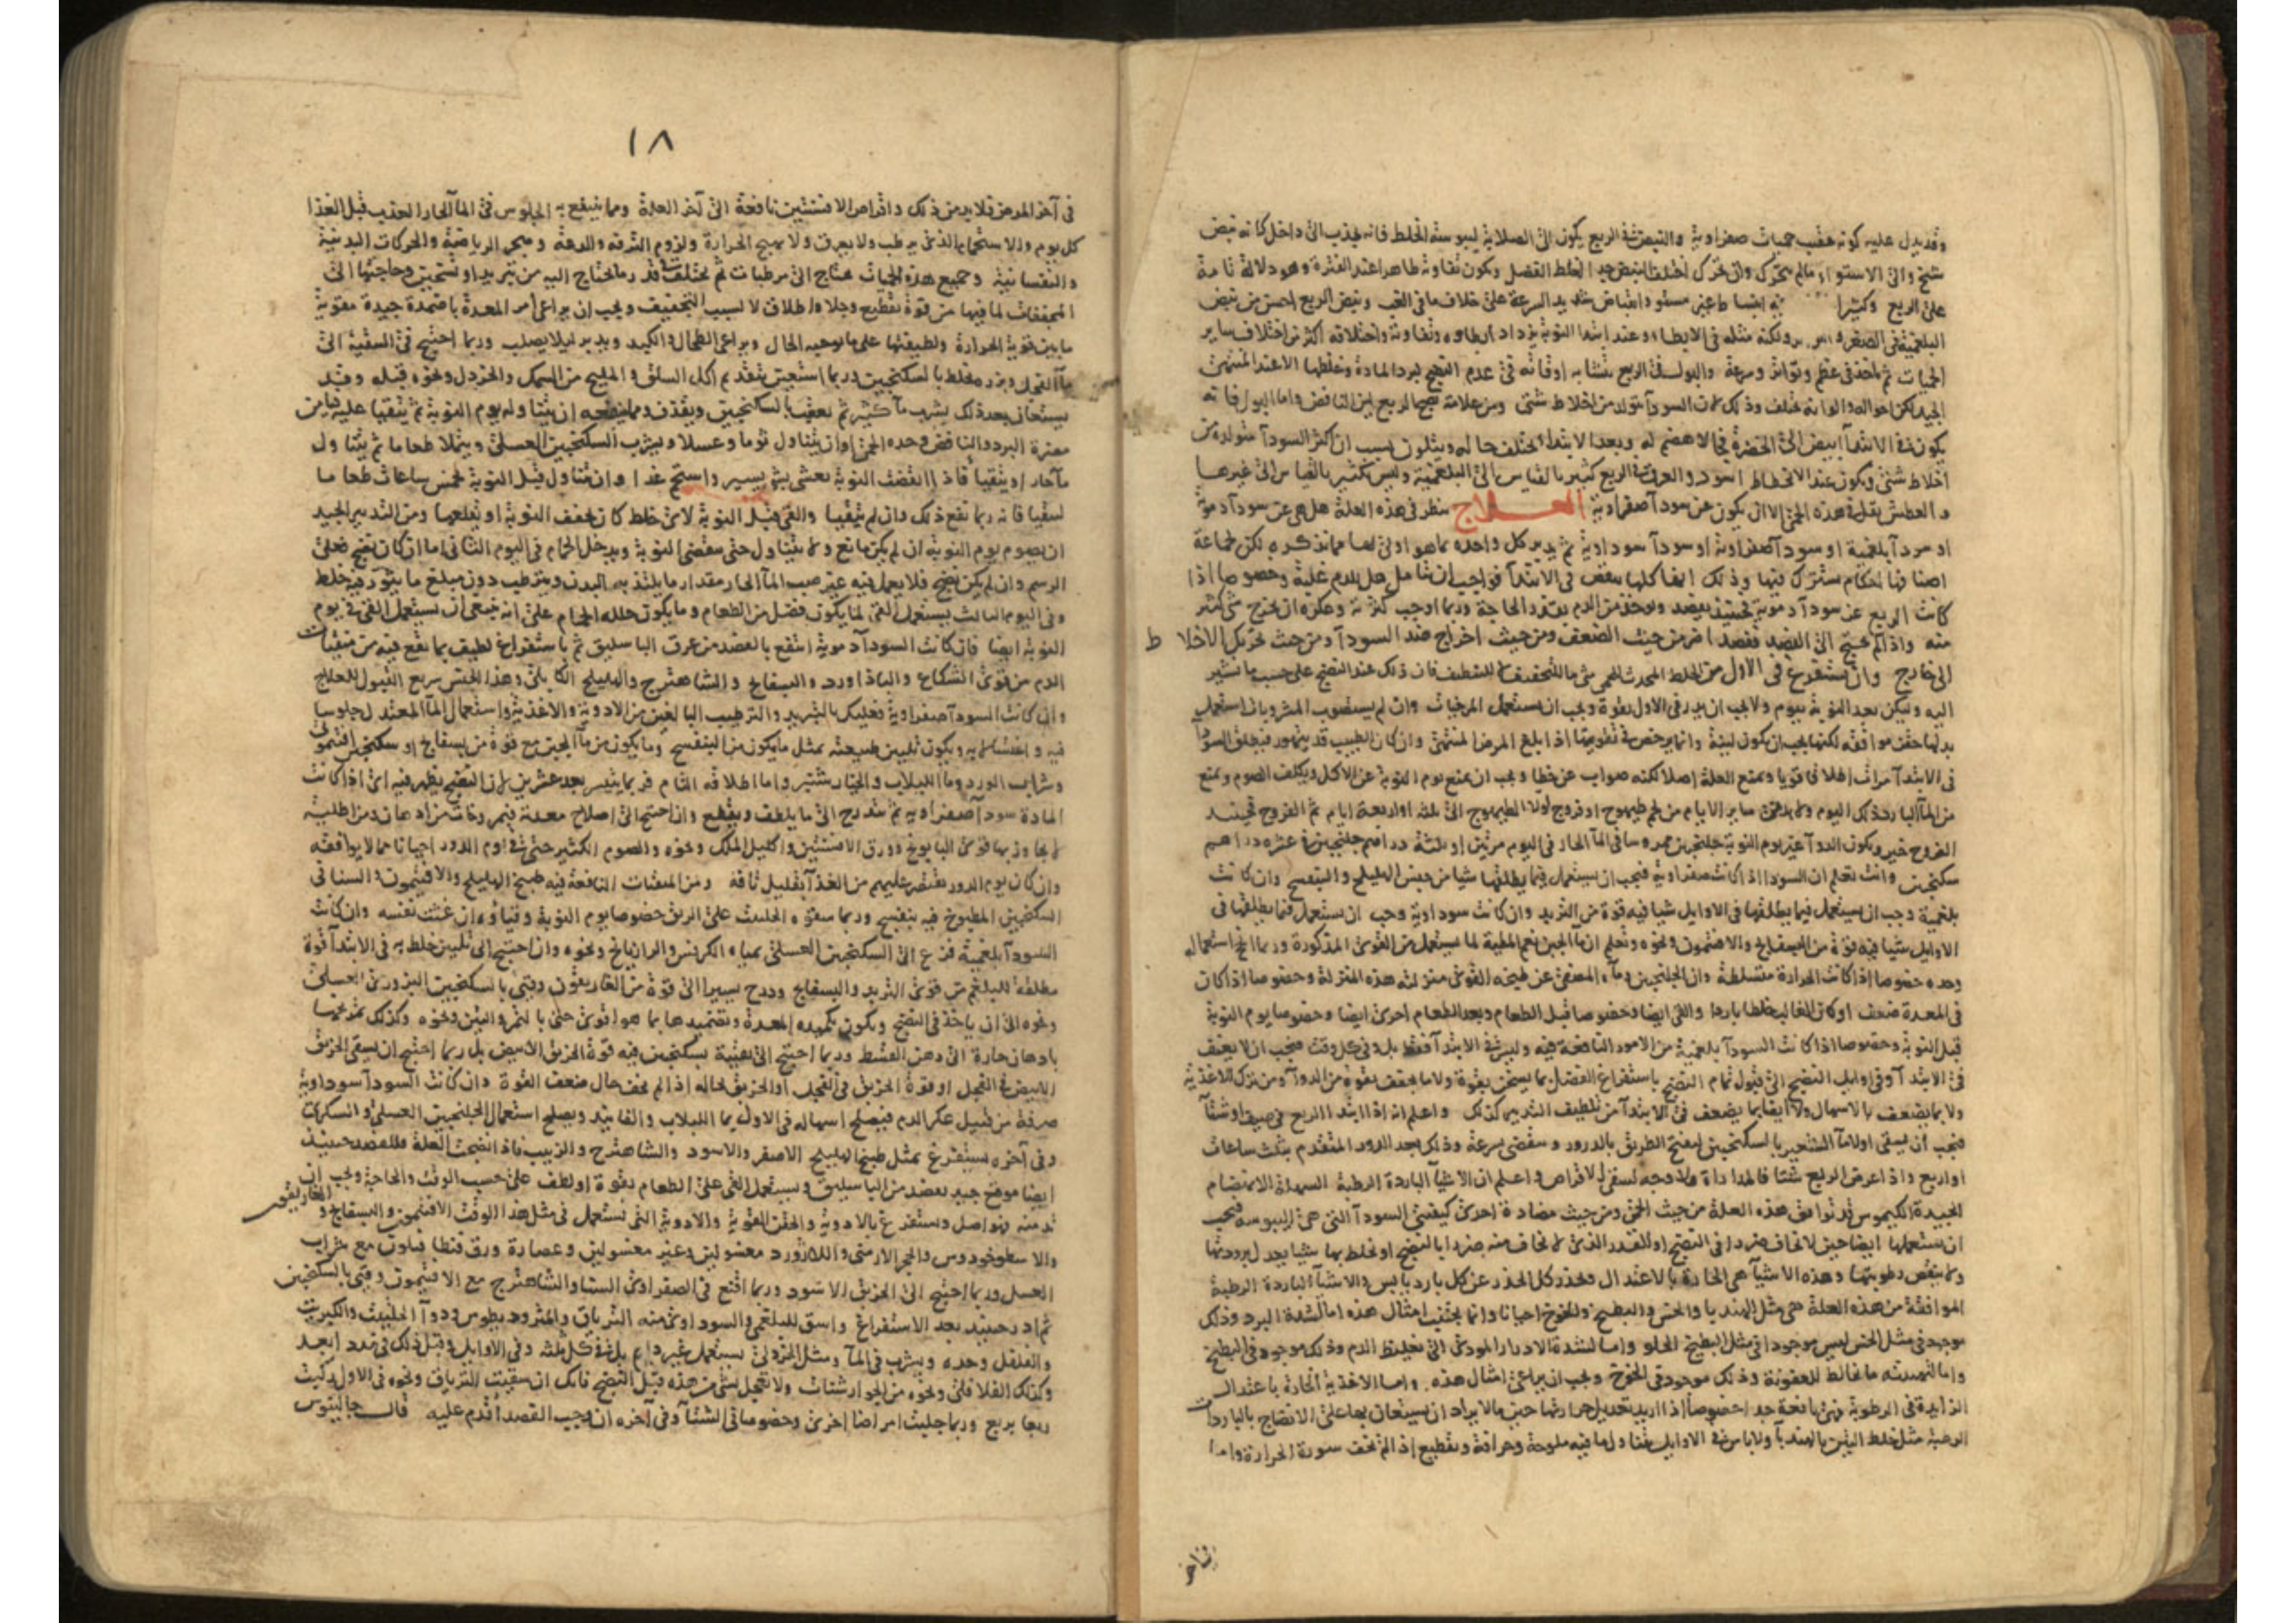 وقد يدل عليه كونه عقيب حميات صفراوية والنبض في الربع يكون الى الصلابة ليبوسة الخلط فانه يجذب الى داخل كانه نبض
شيخ والى الاستواء مالم يتحرك وان تحرك اختلف النبض جدا لغلط الفضل ويكون تفاوته ظاهرا عند الفترة وهو دلالة تامة
على الربع وكثيرا انبساط غير مستو وانقباض شديد السرعة على خلاف ما في الغب ونبض الربع احسن من نبض
البلغمية في الصغر ولكنه مثله في الابطاء وعند ابتدا النوبة يزداد ابطاوه وتفاوته واختلافه اكثر من اختلاف ساير
الحميات ثم ياخذ في عظم وتواتر وسرعة والبول في الربع يتشابه اوقاته في عدم النضج لبرد المادة وغلظها الا عند المنتهى
الجيد لكن احواله والوانه تختلف وذلك لان السودآ يتولد من اخلاط شتى ومن علامة نضج الربع لين النافض واما البول فانه
يكون في الابتدآ ابيض الى الخضرة فجا لا هضم له وبعد الابتدا تختلف حاله ويتلون بسبب ان اكثر السودآ متولدة من
اخلاط شتى ويكون عند الانحطاط اسود والعرق في الربع كثير بالقياس الى البلغمية وليس بكثير بالقياس الى غيرها
والعطش يقل في هذه الحمى الا ان يكون عن سودآ صفراوية العلاج ينظر في هذه العلة هل هي عن سودآ دموية
او سودآ بلغمية او سودآ صفراوية او سودآ سوداوية ثم يدبر كل واحدة بما هو اولى بها مما نذكره لكن لجماعة
اصنافها احكام تشترك فيها وذلك انها كلها في الابتدآ فواجب ان تتامل هل للدم غلبة وخصوصا اذا
كانت الربع عن سودآ دموية فحينئذ يفصد ويوخذ من الدم بقدر الحاجة وربما اوجب كثرته وعكره ان يخرج شي كثير
منه واذا لم يحتج الى الفصد ففصد اضر من حيث الضعف ومن حيث اخراج ضد السودآ ومن حيث تحريك الاخلاط
الى خارج وان يستفرغ في الاول من الخلط المحدث للحمى شي ما للتخفيف لا للتنظيف فان ذلك عند النضج على حسب ما نشير
اليه وليكن بعد النوبة بيوم ولا يجب ان يدر في الاول بقوة ويجب ان يستعمل المرخيات وان لم يستصوب المشروبات استعمل
بدلها حقن موافقة لكنها يجب ان يكون لينة وانما يرخص في تقويتها اذا بلغ المرض المنتهى وان كان الطبيب قد يتهور فيطلق السودآ
في الابتدآ مرات اطلاقا قويا ويمنع العلة اصلا لكنه صواب عن خطا ويجب ان يمنع يوم النوبة عن الاكل ويكلف الصوم ويمنع
من المآ البارد ذلك اليوم ساير الايام من لحم طيهوج او فروج اولا الطيهوج الى ثلثة او اربعة ايام ثم الفروج
الفروج خير ويكون الدوآ غير يوم النوبة جلنجبين ممروسا في المآ الحار في اليوم مرتين او ثلثة دراهم جلنجبين في عشرة دراهم
سكنجبين وانت تعلم ان السودا اذا كانت صفراوية فيجب ان يستعمل فيما يطلقها شيا من جنس الهليلج والبنفسج وان كانت
بلغمية وجب ان يستعمل فيما يطلقها في الاوايل شيا فيه قوة من التربد وان كانت سوداوية وجب ان يستعمل فيما يطلقها في
الاوايل شيا فيه قوة من البسفايج والافتيمون ونحوه وتعلم ان ما الجبن نعم المطية لما يستعمل من القوى المذكورة وربما استعماله
وحده خصوصا اذا كانت الحرارة متسلطة وان الجلنجبين ومآه المصفى عن طبيخه القوى منزلته هذه المنزلة وخصوصا اذا كان
في المعدة ضعف او كان الغالب خلطا باردا والقى ايضا وخصوصا قبل الطعام وبعد الطعام اخرى ايضا وخصوصا يوم النوبة
قبل النوبة وخصوصا اذا كانت السودآ بلغمية من الامور النافعة فيه وليس في الابتدآ فقط بل وفي كل وقت فيجب ان لا يعنف
في الابتدآ وفي اوايل النضج الى قبول تمام النضج باستفراغ الفضل بما يسخن بقوة ولا ما يجفف بقوة من الدوآ ومن ترك الاغذية
ولا بما يضعف بالاسهال ولا ايضا بما يضعف في الابتدآ من تلطيف التدبير كذلك واعلم انه اذا ابتدا الربع في صيف او شتآ
فيجب ان يسقى اولا مآ الشعير بالسكنجبين ليفتح الطريق بالدرور وينقضي بسرعة وذلك بعد الدور المتقدم بثلث ساعات
او اربع واذا عرض الربع شتا فالمداراة ولا وجه لسقى الاقراص واعلم ان الاشيآ الباردة الرطبة السهلة الانهضام
الجيدة الكيموس قد توافق هذه العلة من حيث الحمى ومن حيث مضادة احدى كيفيتي السودآ التي هي اليبوسة فيجب
ان يستعملها ايضا حين لا تخاف ضررا في النضج او للقدر الذي لا يخاف منه ضررا بالنضج او تخلط بها شيا يعدل برودتها
ولا ينقص رطوبتها وهذه الاشيآ هي الحارة بالاعتدال وتحذر كل الحذر عن كل بارد يابس والاشيآ الباردة الرطبة
الموافقة من هذه العلة هي مثل الهندبا والخس والبطيخ والخوخ احيانا وانما يجتنب امثال هذه اما لشدة البرد وذلك
موجود في مثل الخس ليس موجودا في مثل البطيخ الحلو واما لشدة الادرار المودي الى تغليظ الدم وذلك موجود في البطيخ
واما للعفونة وذلك موجود في الخوخ ويجب ان يراعى امثال هذه واما الاغذية الحارة باعتدال
الزايدة في الرطوبة فهي نافعة جدا خصوصا اذا اريد تعديل حرارتها حين ما لا يراد ان يستعان بها على الانضاج بالباردات
الرطبة مثل خلط التين بالهندبآ ولا باس في الاوايل بتناول ما فيه ملوحة وحرافة وتقطيع اذا لم تخف سورة الحرارة واما
في آخر
١٨
في آخر المرض فلا بد من ذلك واقراص الافسنتين نافعة الى آخر العلة ومما ينتفع به الجلوس في المآ الحار العذب قبل الغذا
كل يوم والاستحمام الذي يرطب ولا يعرق ولا يهيج الحرارة ولزوم الترفه والدعة وهجر الرياضة والحركات البدنية
والنفسانية وجميع هذه الحميات محتاج الى مرطبات ثم تختلف قد ربما تحتاج اليه من تبريد او تسخين وحاجتها الى
المجففات لما فيها من قوة تقطيع وجلا واطلاق لا لسبب التجفيف ويجب ان يراعى امر المعدة باضمدة جيدة مقوية
ما بين قوية الحرارة ولطيفتها على ما يوجبه الحال ويراعى الطحال والكبد ويدبر ليلا يصلب وربما احتيج في السقية الى
مآ الفجل وبزره مخلط بالسكنجبين وربما استعين بتقديم اكل السلق والمليح من السمك والخردل ونحوه قبله وقد
يستعان بعد ذلك بشرب مآ كثير ثم يعقب بالسكنجبين ويقذف ومما ان يتناوله يوم النوبة ثم يتقيا عليه
مضرة البرد والنافض وحده الحمى ان يتناول ثوما وعسلا ويشرب السكنجبين العسلي ويتملا طعاما ثم يتناول
مآ حار او يتقيا فاذا انقضت النوبة تعشى بشي يسير واستحم غدا وان تناول قبل النوبة بخمس ساعات طعاما
ليتقيا فانه ربما نفع ذلك وان لم يتقيا والقى قبل النوبة لاى خلط كان يخفف النوبة او يقلعها ومن التدبير الجيد
ان يصوم يوم النوبة ان لم يكن مانع ولا يتناول حتى تنقضى النوبة ويدخل الحمام في اليوم الثاني اما ان كان نضج فعلى
الرسم وان لم يكن نضج فلا يعمل فيه غير صب المآ الحار مقدار ما يلتذ به البدن ويترطب دون مبلغ ما يثور فيه خلط
وفي اليوم الثالث يستعمل القى لما يكون فضل من الطعام وما يكون حلله الحمام على انه ينبغي ان يستعمل القى في يوم
النوبة ايضا فان كانت السودآ دموية انتفع بالفصد من عرق الباسليق ثم باستفراغ لطيف بما نفع فيه من منقيات
الدم من قوى الشكاع والباذاورد والبسفايج والشاهترج والهليلج الكابلي وهذا الجنس سريع القبول للعلاج
وان كانت السودآ صفراوية فعليك بالتبريد والترطيب البالغين من الادوية والاغذية واستعمال المآ المعتدل جلوسا
فيه واغتسالا به ويكون تليين طبيعته بمثل ما يكون من البنفسج وما يكون من مآ الجبن مع قوة من بسفايج او سكنجبين افتيموني
وشراب الورد ومآ اللبلاب والخيار شنبر واما اطلاقه التام فربما يتيسر بعد عشرين لان النضج يظهر فيه اى اذا كانت
المادة سودآ صفراوية ثم يتدرج الى ما يلطف ويقطع وان احتيج الى اصلاح معدة فبمروخات من ادهان ومن اطلية
لا يجاوز بها قوى البابونج وورق الافسنتين واكليل الملك ونحوه والصوم الكثير حتى في يوم الدور احيانا مما لا يوافقه
وان كان يوم الدور يقتصر عليهم من الغذآ بقليل تافه ومن المنقيات النافعة فيه طبيخ الهليلج والافتيمون والسنا في
السكنجبين المطبوخ فيه بنفسج وربما سقوه الحلتيت على الريق خصوصا يوم النوبة وقياوه ان غثت نفسه وان كانت
السودآ بلغمية فزع الى السكنجبين العسلي بمياه الكرفس والرازيانج ونحوه وان احتيج الى تليين خلط به في الابتدآ قوة
مطلقة للبلغم من قوى التربد والبسفايج ودرج يسيرا الى قوة من الغاريقون وقيى بالسكنجبين البزورى العسلي
ونحوه الى ان ياخذ في النضج ويكون تكميده المعدة وتضميدها بما هو اقوى حتى بالتمر والتين ونحوه وكذلك تمريخها
بادهان حارة الى دهن القسط وربما احتيج الى تقيية بسكنجبين فيه قوة الخربق الابيض بل ربما احتيج ان يسقى الخربق
الابيض في الفجل او قوة الخربق في الفجل او الخربق بحاله اذا لم تخف حال ضعف القوة وان كانت السودآ سوداوية
صرفة من قبيل عكر الدم فيصلح اسهاله في الاول بما اللبلاب والفانيد ويصلح استعمال الجلنجبين العسلي والسكرى
وفي آخره يستفرغ بمثل طبيخ الهليلج الاصفر والاسود والشاهترج والزبيب فاذا نضجت العلة فللفصد حينئذ
ايضا موقع جيد يفصد من الباسليق ويستعمل القى على الطعام بقوة او لطف على حسب الوقت والحاجة ويجب ان
وتستفرغ بالادوية والحقن القوية والادوية التى تستعمل في مثل هذا الوقت الافتيمون والبسفايج والغاريقون
والاسطوخودوس والحجر الارمنى واللازورد مغسولين وغير مغسولين وعصارة ورق قنطافيلون مع شراب
العسل وربما احتيج الى الخربق الاسود وربما اقنع في الصفراوى السنا والشاهترج مع الافتيمون وقيى بالسكنجبين
ثم ادر حينئذ بعد الاستفراغ واسق للبلغمى والسوداوى منه الترياق والمثروديطوس ودوآ الحلتيت والكبريت
والفلفل وحده ويشرب في المآ
وكذلك الفلافلى ونحوه من الجوارشنات ولا تعجل بشي من هذه قبل النضج فانك ان سقيت الترياق ونحوه في الاول ركبت
ربعا بربع وربما جلبت امراضا اخرى وخصوصا في الشتآ وفي آخره ان وجب الفصد اقدم عليه قال جالينوس